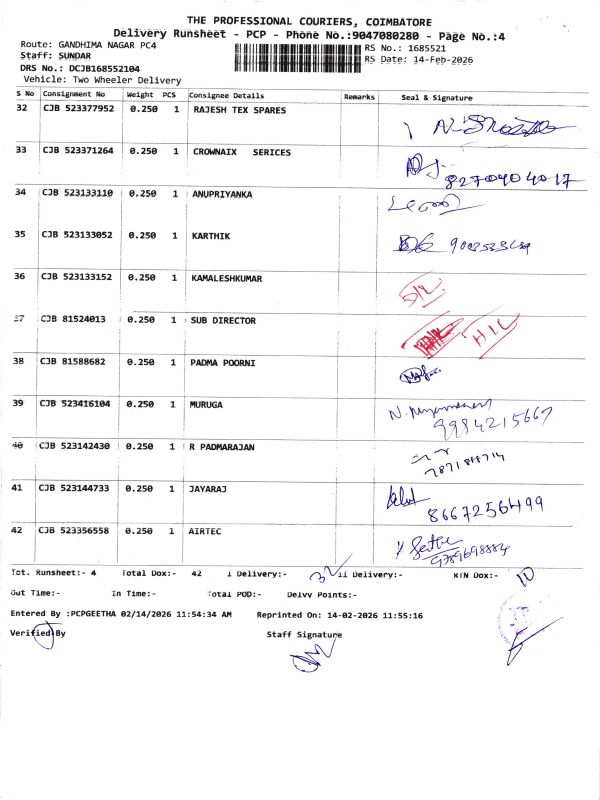 THE PROFESSIONAL COURIERS, COIMBATORE
Delivery Runsheet - PCP - Phone No.:9047080280 - Page No.:4
Route: GANDHIMA NAGAR PC4 RS No.: 1685521
Staff: SUNDAR RS Date: 14-Feb-2026
DRS No.: DCJB168552104
Vehicle: Two Wheeler Delivery
S No Consignment No Weight PCS Consignee Details Remarks Seal & Signature
32 CJB 523377952 0.250 1 RAJESH TEX SPARES
33 CJB 523371264 0.250 1 CROWNAIX SERICES
8270404017
34 CJB 523133110 0.250 1 ANUPRIYANKA
35 CJB 523133052 0.250 1 KARTHIK
36 CJB 523133152 0.250 1 KAMALESHKUMAR
D/L
37 CJB 81524013 0.250 1 SUB DIRECTOR
H I L
38 CJB 81588682 0.250 1 PADMA POORNI
39 CJB 523416104 0.250 1 MURUGA
9984215667
40 CJB 523142430 0.250 1 R PADMARAJAN
41 CJB 523144733 0.250 1 JAYARAJ
8667256499
42 CJB 523356558 0.250 1 AIRTEC
9389698884
Tot. Runsheet:- 4 Total Dox:- 42 I Delivery:- 32 II Delivery:- XIN Dox:- 10
Out Time:- In Time:- Total POD:- Delvv Points:-
Entered By :PCPGEETHA 02/14/2026 11:54:34 AM Reprinted On: 14-02-2026 11:55:16
Verified By Staff Signature